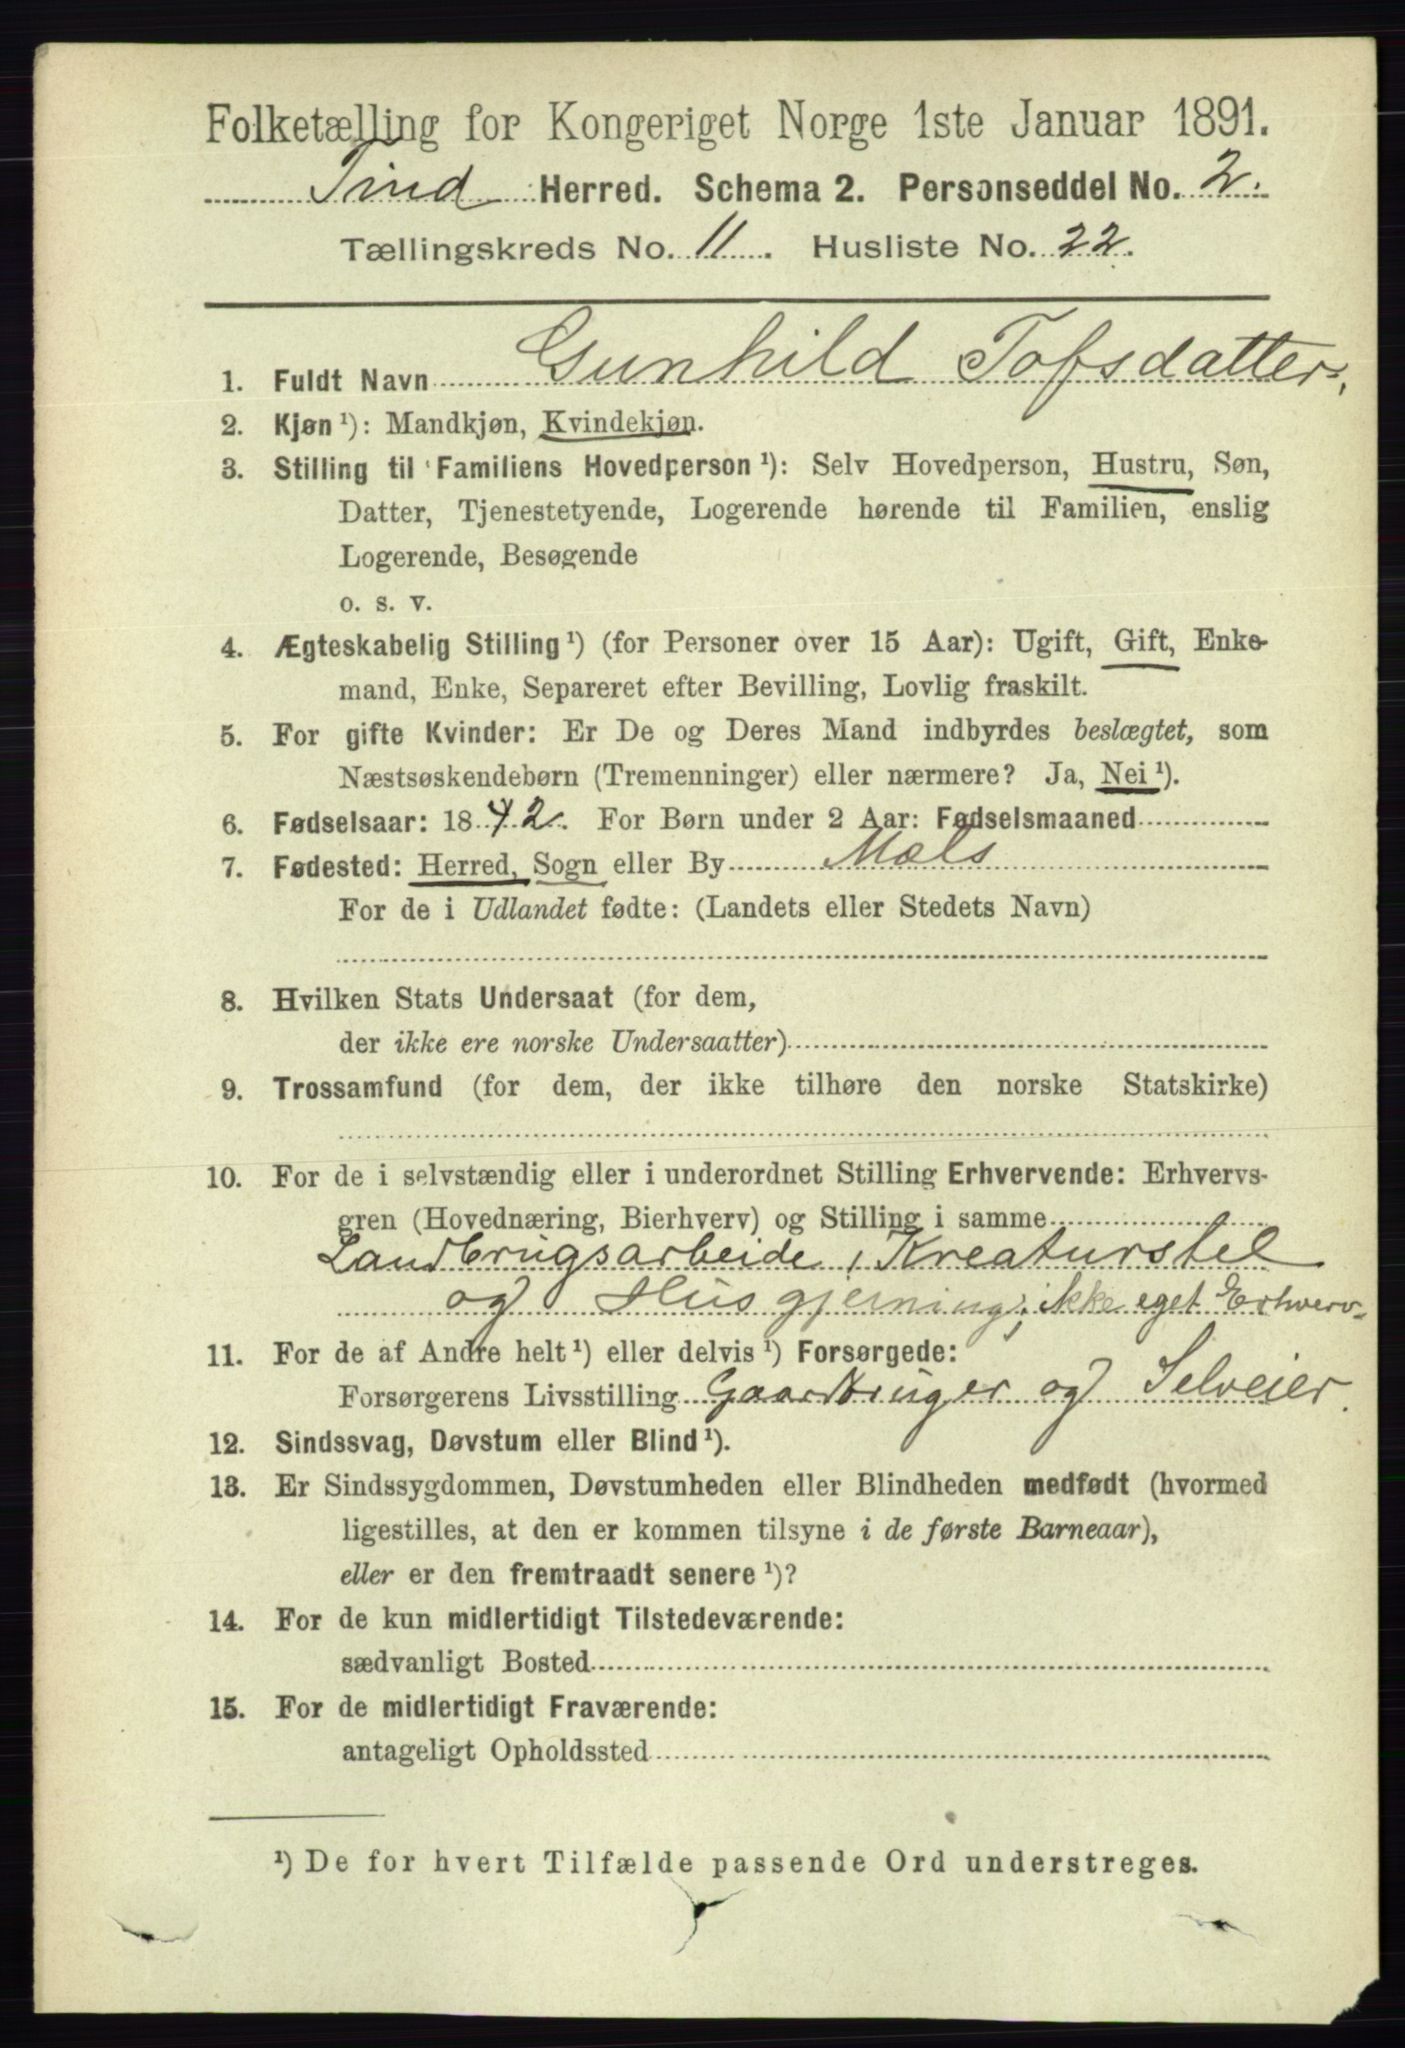 Folketælling for Kongeriget Norge 1ste Januar 1891.
Tind Herred. Schema 2. Personseddel No. 2.
Tællingskreds No. 11. Husliste No. 22.
1. Fuldt Navn Gunhild Tofsdatter,
2. Kjøn ¹): Mandkjøn, Kvindekjøn.
3. Stilling til Familiens Hovedperson ¹): Selv Hovedperson, Hustru, Søn,
Datter, Tjenestetyende, Logerende hørende til Familien, enslig
Logerende, Besøgende
o. s. v.
4. Ægteskabelig Stilling ¹) (for Personer over 15 Aar): Ugift, Gift, Enke-
mand, Enke, Separeret efter Bevilling, Lovlig fraskilt.
5. For gifte Kvinder: Er De og Deres Mand indbyrdes beslægtet, som
Næstsøskendebørn (Tremenninger) eller nærmere? Ja, Nei ¹).
6. Fødselsaar: 1842. For Børn under 2 Aar: Fødselsmaaned
7. Fødested: Herred, Sogn eller By Mæls
For de i Udlandet fødte: (Landets eller Stedets Navn)
8. Hvilken Stats Undersaat (for dem,
der ikke ere norske Undersaatter)
9. Trossamfund (for dem, der ikke tilhøre den norske Statskirke)
10. For de i selvstændig eller i underordnet Stilling Erhvervende: Erhvervs-
gren (Hovednæring, Bierhverv) og Stilling i samme
Landbrugsarbeide, Kreaturstel
og Husgjerning; ikke eget Erhverv
11. For de af Andre helt ¹) eller delvis ¹) Forsørgede:
Forsørgerens Livsstilling Gaardbruger og Selveier.
12. Sindssvag, Døvstum eller Blind ¹).
13. Er Sindssygdommen, Døvstumheden eller Blindheden medfødt (hvormed
ligestilles, at den er kommen tilsyne i de første Barneaar),
eller er den fremtraadt senere ¹)?
14. For de kun midlertidigt Tilstedeværende:
sædvanligt Bosted
15. For de midlertidigt Fraværende:
antageligt Opholdssted
¹) De for hvert Tilfælde passende Ord understreges.